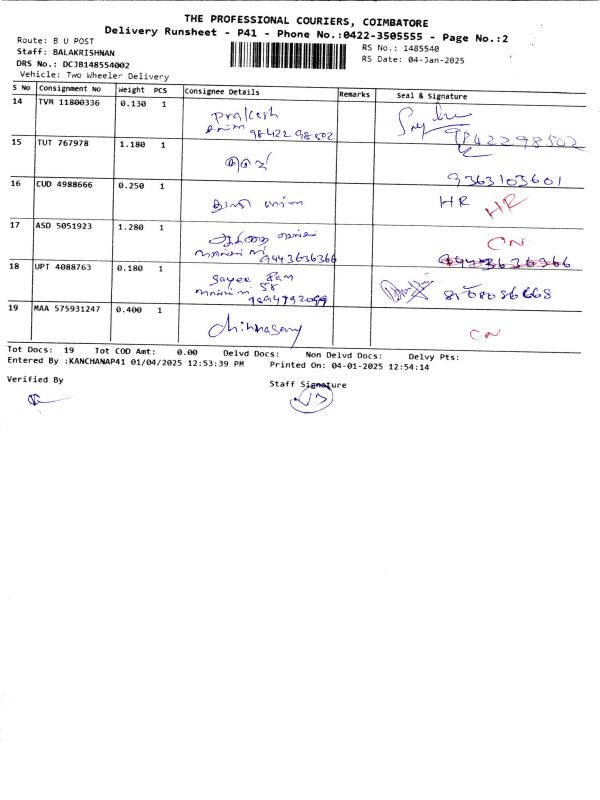 THE PROFESSIONAL COURIERS, COIMBATORE
Delivery Runsheet - P41 - Phone No.:0422-3505555 - Page No.:2
Route: B U POST
RS No.: 1485540
Staff: BALAKRISHNAN
RS Date: 04-Jan-2025
DRS No.: DCJB148554002
Vehicle: Two Wheeler Delivery
S No Consignment No Weight PCS Consignee Details Remarks Seal & Signature
14 TVM 11800336 0.130 1
prakash
98422 98502
9842298502
15 TUT 767978 1.180 1
9363103601
16 CUD 4988666 0.250 1 HR HR
17 ASD 5051923 1.280 1
CN
9443636366 9443636366
18 UPT 4088763 0.180 1
58
19 MAA 575931247 0.400 1
chinnasamy CN
Tot Docs: 19 Tot COD Amt: 0.00 Delvd Docs: Non Delvd Docs: Delvy Pts:
Entered By :KANCHANAP41 01/04/2025 12:53:39 PM Printed On: 04-01-2025 12:54:14
Verified By
Staff Signature